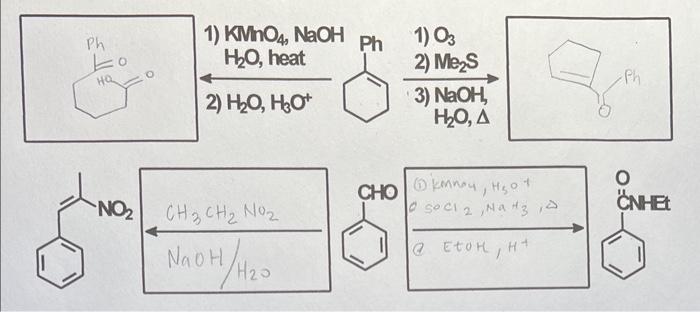 1) KMnO₄, NaOH
H₂O, heat
2) H₂O, H₃O⁺
Ph
1) O₃
2) Me₂S
3) NaOH,
H₂O, Δ
Ph
O
HO
O
Ph
O
NO₂
CH₃CH₂NO₂
NaOH/H₂O
CHO
① kmnO₄, H₃O+
SOCl₂, NaH₃, Δ
EtOH, H+
O
CNHEt